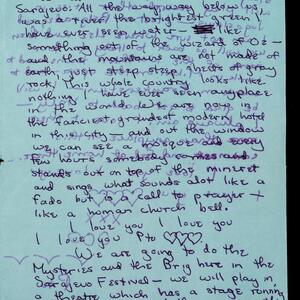 Sarajevo: All the way away below us
was a river the brightest green
I have ever seen water — like
something out of the wizard of Oz —
and the mountains are not made of
earth, just steep, steep, sheets of gray
rock. This whole country looks like
nothing I have ever seen anyplace
in the world. We are now in
the fanciest grandest modern hotel
in this city — and out the window
we can see a mosque and every
few hours somebody comes and
stands out on top of the mineret
and sings what sounds alot like a
fado but is a call to prayer —
like a human church bell.
I love you I love you
I I love you Pto
We are going to do the
Mysteries and the Brig here in the
Sarajevo Festival — we will play in
a theatre which has a stage running